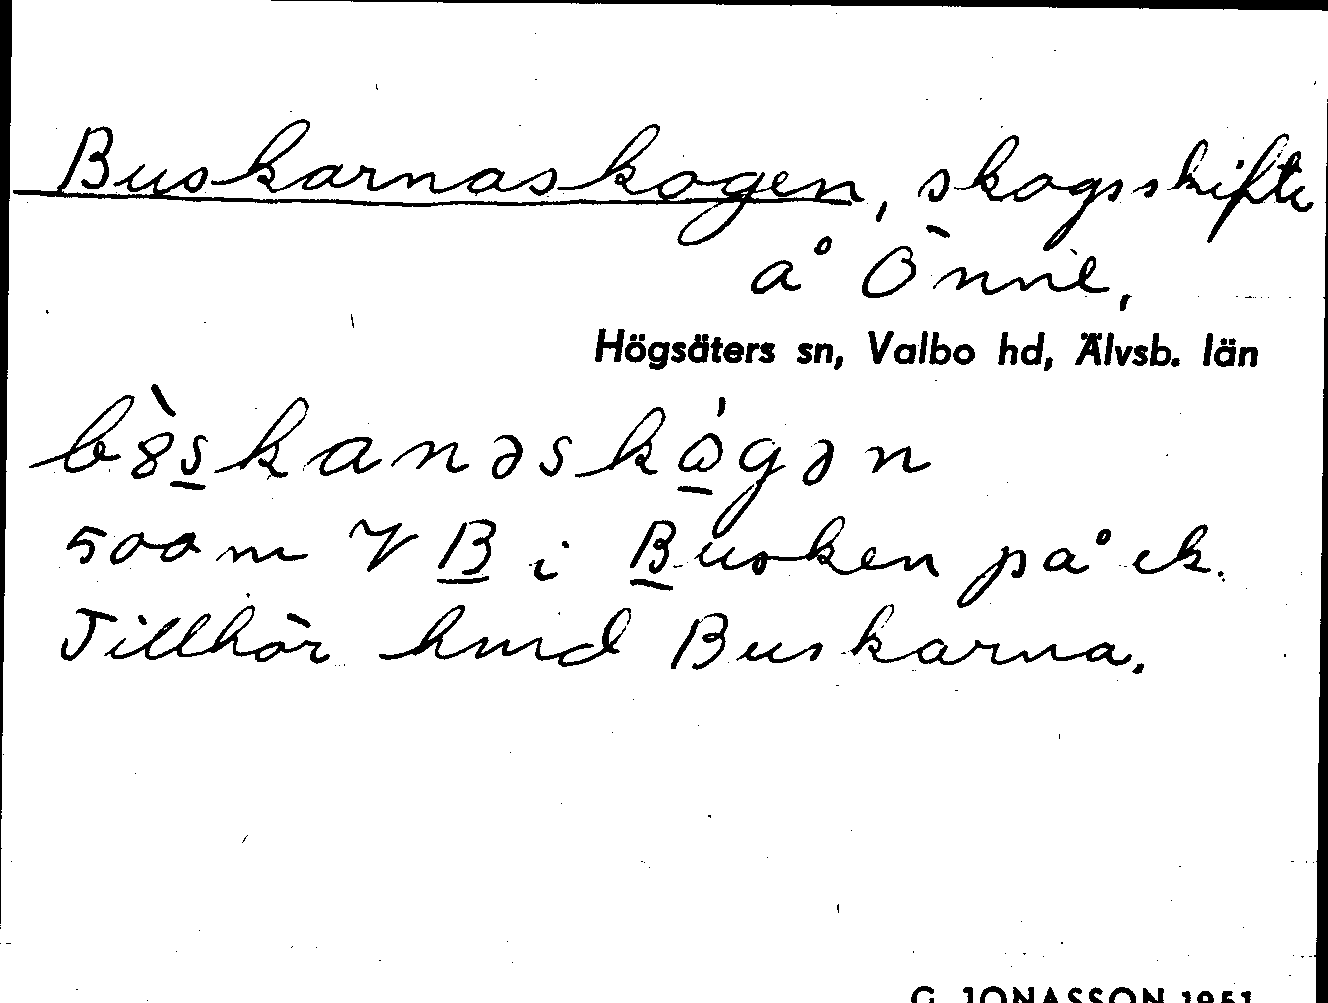 Buskarnaskogen, skogsskifte
å Önne,
Högsäters sn, Valbo hd, Älvsb. län
b8̀skanəskǻgən
500 m V B i Busken på ek.
Tillhör hmd Buskarna.
G. JONASSON 1951